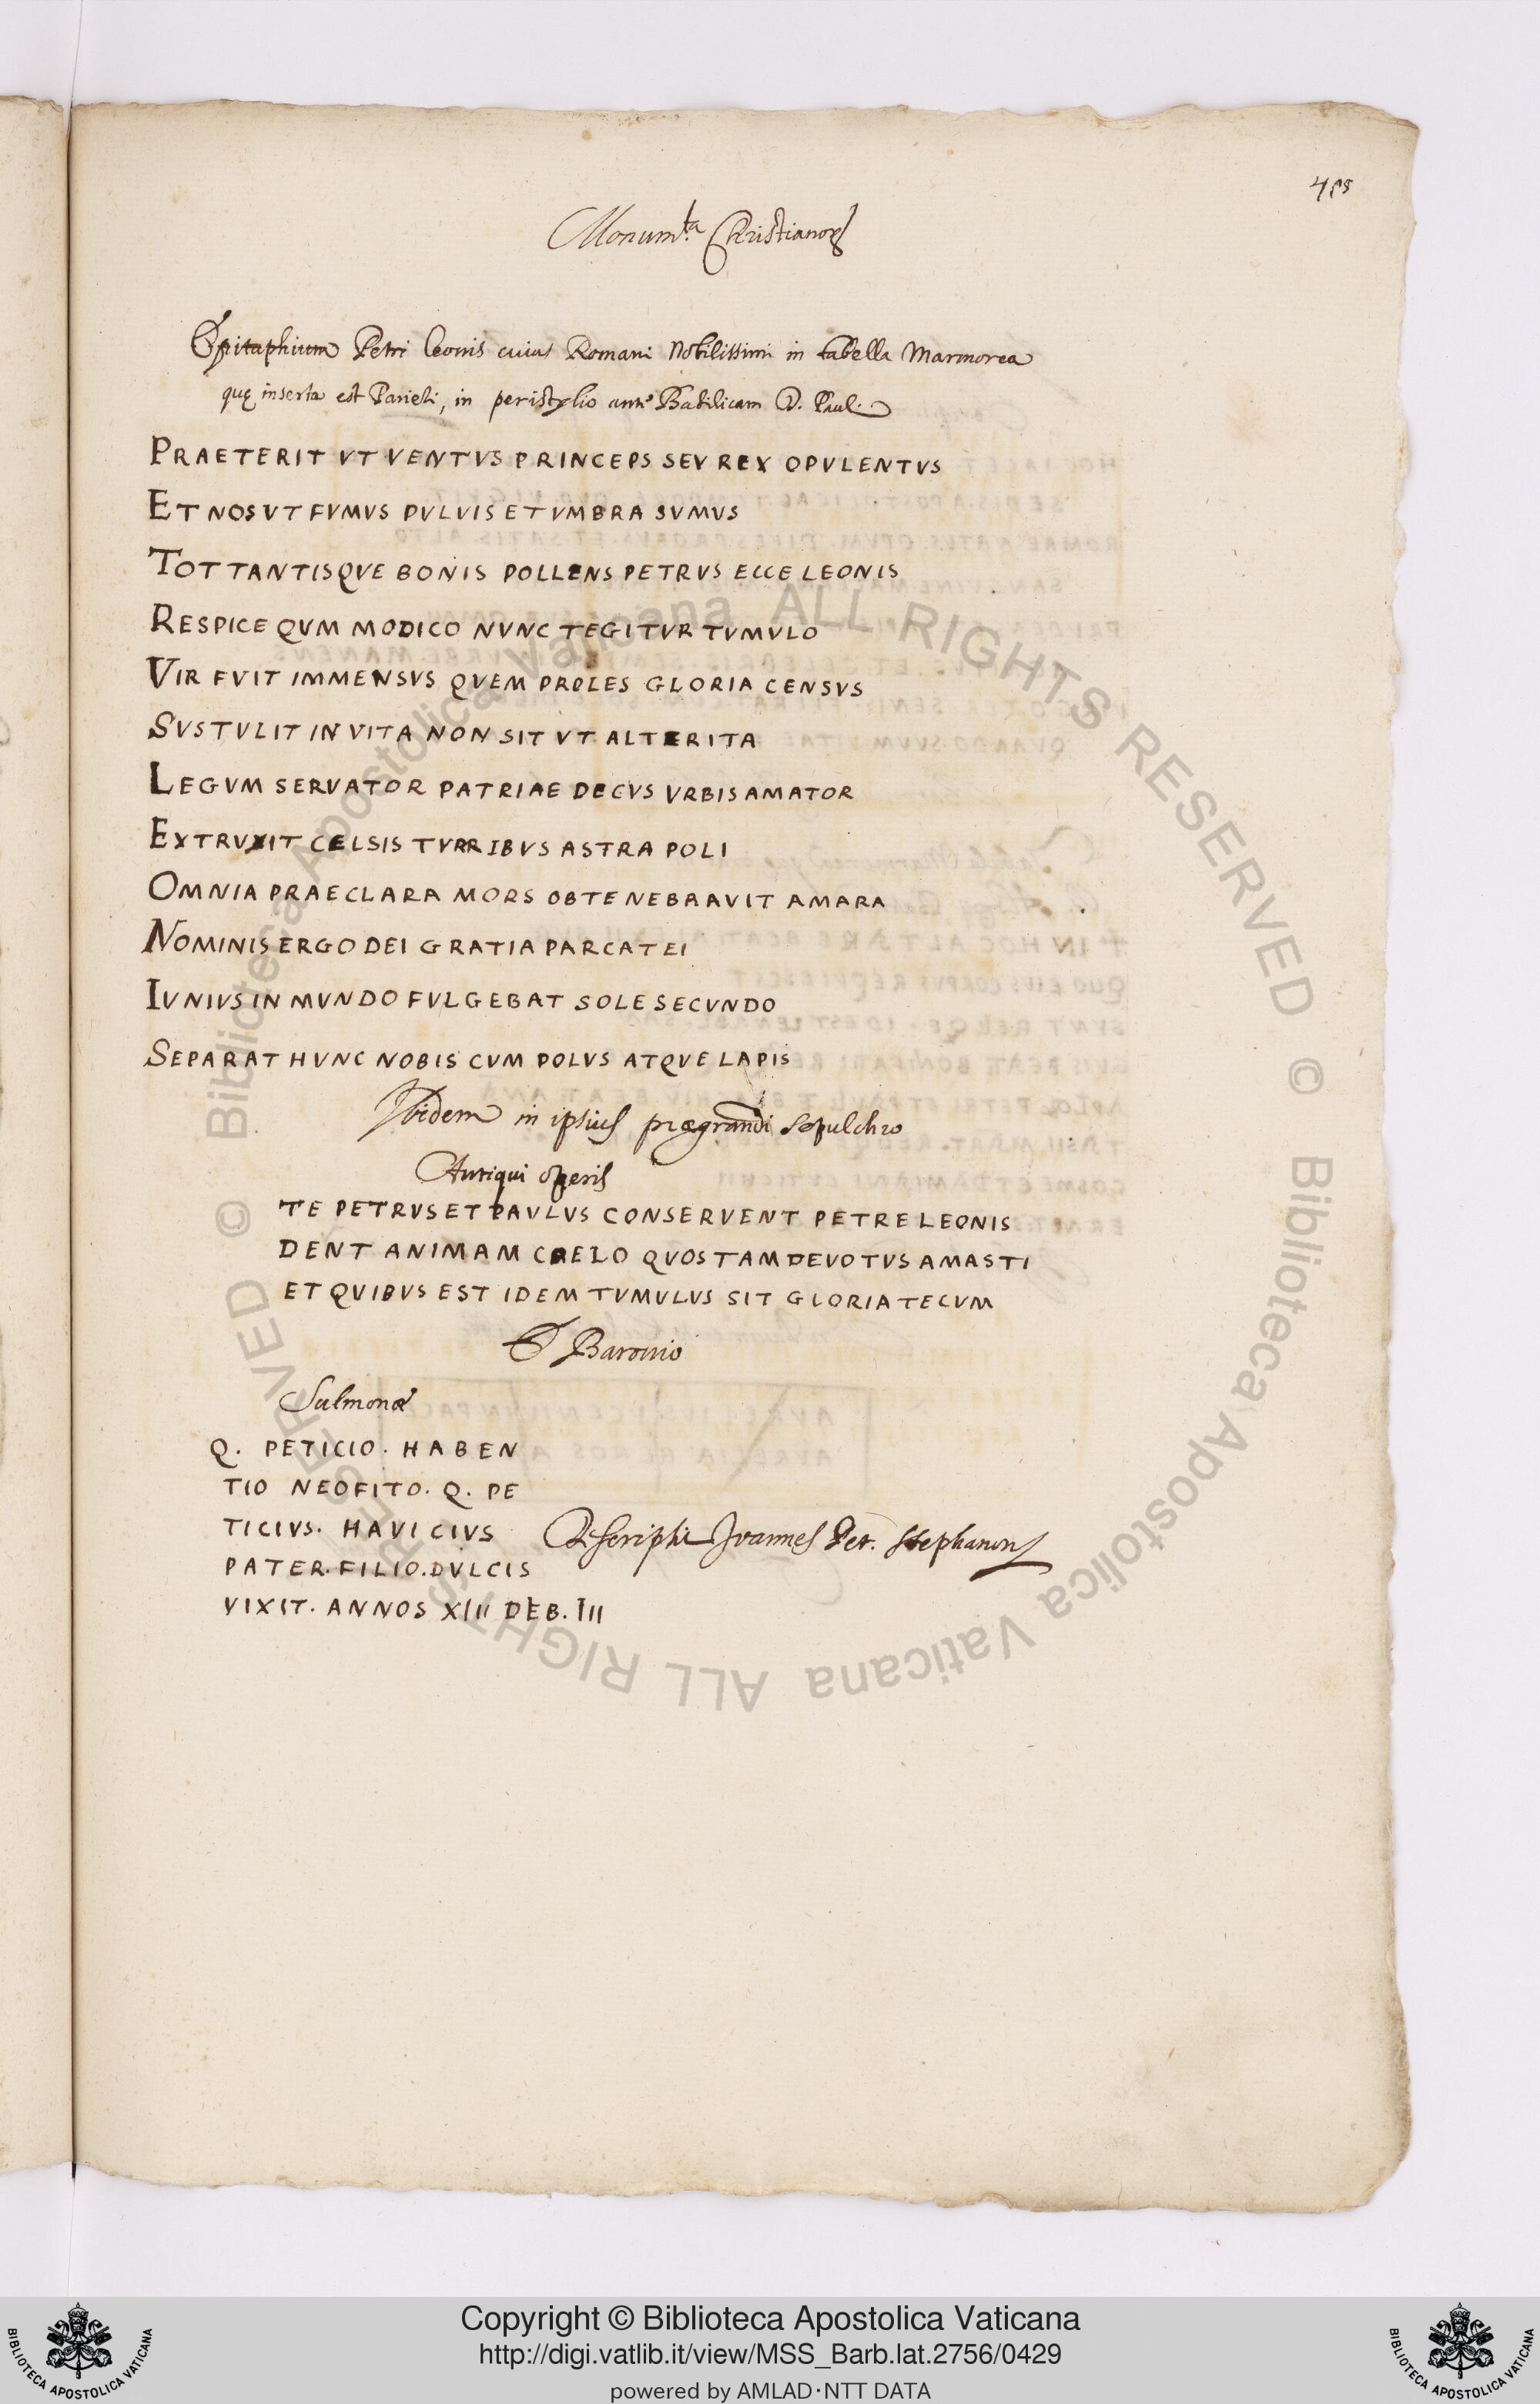 Monum.ta Christianor
Epitaphium Petri Leonis civis Romani Nobilissimi in tabella Marmorea
quę inserta est Parieti, in peristylio ante Basilicam D. Paul.
PRAETERIT VT VENTVS PRINCEPS SEV REX OPVLENTVS
ET NOS VT FVMVS PVLVIS ET VMBRA SVMVS
TOT TANTISQVE BONIS POLLENS PETRVS ECCE LEONIS
RESPICE QVM MODICO NVNC TEGITVR TVMVLO
VIR FVIT IMMENSVS QVEM PROLES GLORIA CENSVS
SVSTVLIT IN VITA NON SIT VT ALTER ITA
LEGVM SERVATOR PATRIAE DECVS VRBIS AMATOR
EXTRVXIT CELSIS TVRRIBVS ASTRA POLI
OMNIA PRAECLARA MORS OBTENEBRAVIT AMARA
NOMINIS ERGO DEI GRATIA PARCAT EI
IVNIVS IN MVNDO FVLGEBAT SOLE SECVNDO
SEPARAT HVNC NOBIS CVM POLVS ATQVE LAPIS
Ibidem in ipsius prægrandi sepulchro
Antiqui operis
TE PETRVS ET PAVLVS CONSERVENT PETRE LEONIS
DENT ANIMAM CAELO QVOS TAM DEVOTVS AMASTI
ET QVIBVS EST IDEM TVMVLVS SIT GLORIA TECVM
E Baronio
Sulmonæ
Q. PETICIO. HABEN
TIO NEOFITO. Q. PE
TICIVS. HAVICIVS
PATER. FILIO. DVLCIS
VIXIT. ANNOS XIII DEB. III
Joannes Pet. Stephanon
© Biblioteca Apostolica Vaticana ALL RIGHTS RESERVED © Biblioteca Apostolica Vaticana ALL RIGHTS RESERVED
Copyright © Biblioteca Apostolica Vaticana
http://digi.vatlib.it/view/MSS_Barb.lat.2756/0429
powered by AMLAD·NTT DATA
BIBLIOTECA APOSTOLICA VATICANA
BIBLIOTECA APOSTOLICA VATICANA